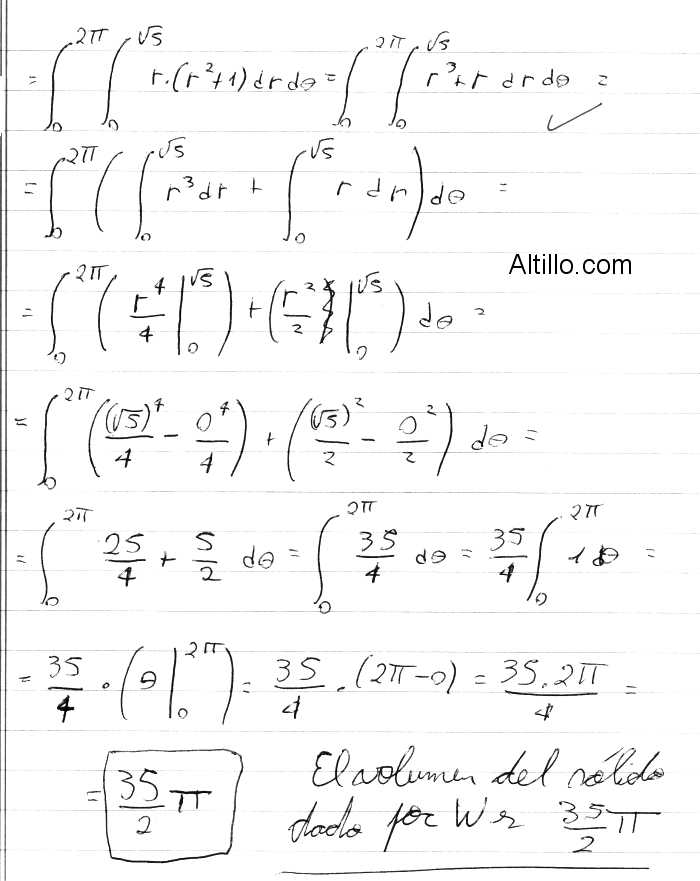 = ∫₀^{2π} ∫₀^{√5} r.(r²+1) dr dθ = ∫₀^{2π} ∫₀^{√5} r³+r dr dθ =
= ∫₀^{2π} ( ∫₀^{√5} r³ dr + ∫₀^{√5} r dr ) dθ =
Altillo.com
= ∫₀^{2π} ( r⁴/4 |₀^{√5} ) + ( r²/2 |₀^{√5} ) dθ =
= ∫₀^{2π} ( (√5)⁴/4 - 0⁴/4 ) + ( (√5)²/2 - 0²/2 ) dθ =
= ∫₀^{2π} 25/4 + 5/2 dθ = ∫₀^{2π} 35/4 dθ = 35/4 ∫₀^{2π} 1 dθ =
= 35/4 . ( θ |₀^{2π} ) = 35/4 . (2π-0) = 35.2π/4 =
= 35/2 π
El volumen del sólido
dado por W es 35/2 π